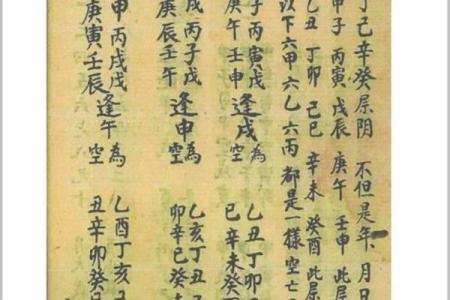 丁己辛癸屬阴 不但是年月日
甲子 丙寅 戊辰 庚午 壬申 此屬
乙丑 丁卯 己巳 辛未 癸酉 此屬
以下六甲 六乙 六丙 都是一樣空亡
子丙寅戊
庚午壬申
逢戌為空
乙丑丁卯
巳辛未癸
戌丙子戊
庚辰壬午
逢申為空
乙亥丁丑
卯辛巳癸
申丙戌戊
庚寅壬辰
逢午為空
乙酉丁亥
丑辛卯癸